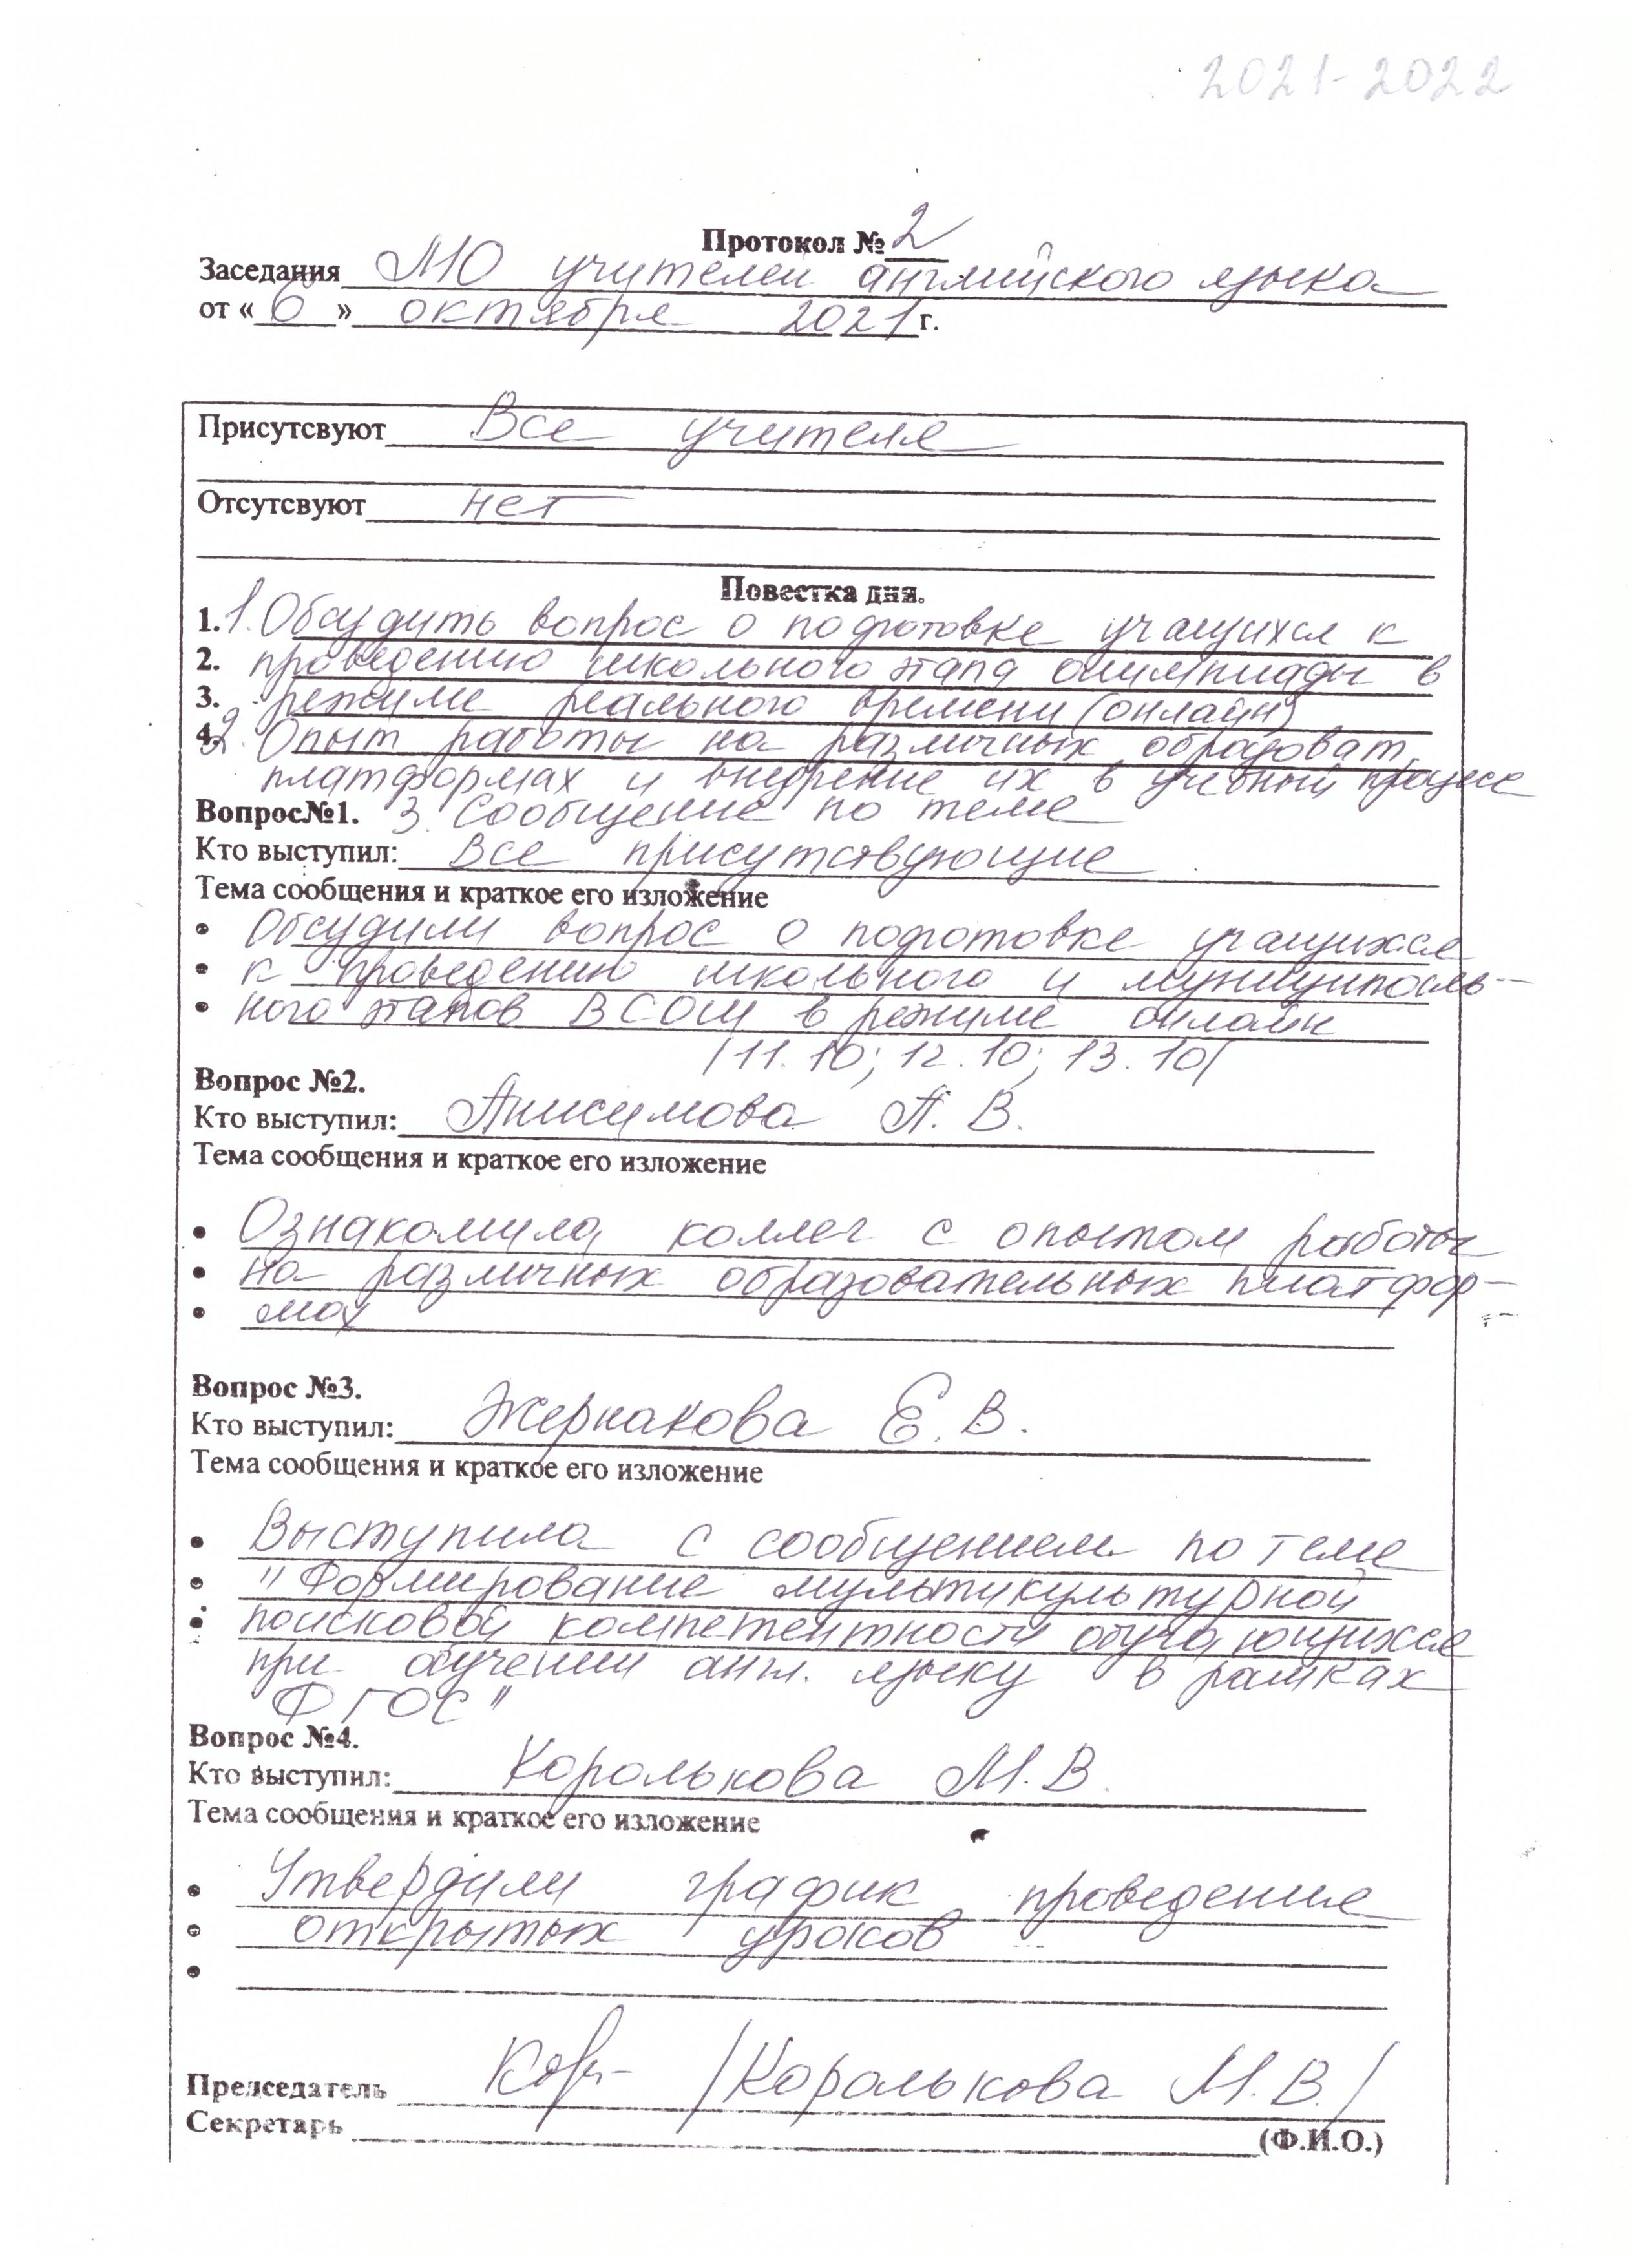 2021-2022
Протокол № 2
Заседания МО учителей английского языка
от « 6 » октября 2021 г.
Присутсвуют Все учителя
Отсутсвуют нет
Повестка дня.
1. 1. Обсудить вопрос о подготовке учащихся к
2. проведению школьного этапа олимпиады в
3. режиме реального времени (онлайн)
4. 2. Опыт работы на различных образоват.
платформах и внедрение их в учебный процесс
Вопрос№1. 3. Сообщение по теме
Кто выступил: Все присутствующие
Тема сообщения и краткое его изложение
• Обсудили вопрос о подготовке учащихся
• к проведению школьного и муниципаль-
• ного этапов ВСОШ в режиме онлайн
/11.10; 12.10; 13.10/
Вопрос №2.
Кто выступил: Анисимова А. В.
Тема сообщения и краткое его изложение
• Ознакомила коллег с опытом работы
• на различных образовательных платфор-
• мах
Вопрос №3.
Кто выступил: Жернакова Е. В.
Тема сообщения и краткое его изложение
• Выступила с сообщением по теме
• "Формирование мультикультурной
• поисковой компетентности обучающихся
при обучении англ. языку в рамках
ФГОС"
Вопрос №4.
Кто выступил: Королькова М. В.
Тема сообщения и краткое его изложение
• Утвердили график проведение
• открытых уроков
•
Председатель /Королькова М. В./
Секретарь (Ф.И.О.)